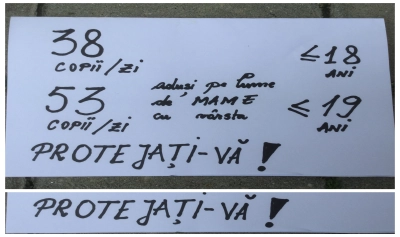 38 ≤18
COPII/ZI ANI
aduși pe lume
53 de MAME ≤ 19
COPII/ZI cu vârsta ANI
PROTEJAȚI-VĂ!
PROTEJAȚI-VĂ!